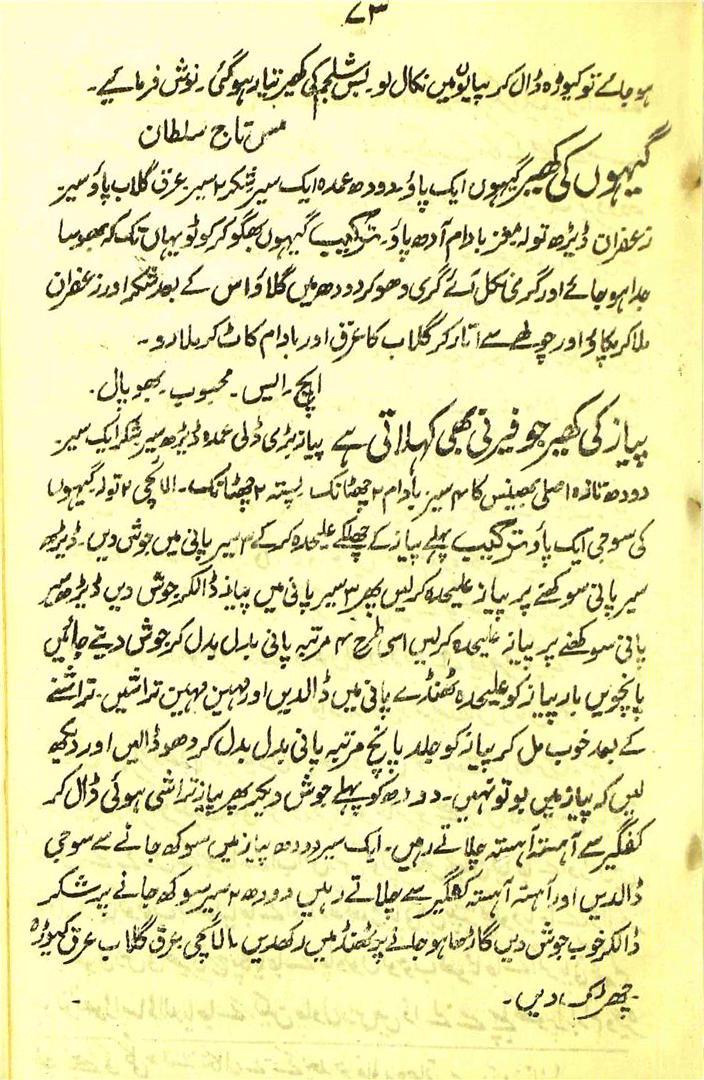 ۷۳
ہو جائے تو کیوڑہ ڈال کر پیالوں میں نکال لو۔ بس شلجم کی کھیر تیار ہو گئی۔ نوش فرمائیے۔
مس تاج سلطان
گیہوں کی کھیر گیہوں ایک پاؤ۔ دودھ عمدہ ایک سیر شکر ۲ سیر۔ عرق گلاب پاؤ سیر۔
زعفران ڈیڑھ تولہ مغز بادام آدھ پاؤ۔ ترکیب گیہوں بھگو کر کوٹو یہاں تک کہ بھوسا
جدا ہو جائے اور گری نکل آئے گری دھو کر دودھ میں گلاؤ اس کے بعد شکر اور زعفران
ملا کر پکاؤ اور چولھے سے اتار کر گلاب کا عرق اور بادام کاٹ کر ملا دو۔
ایچ۔ ایس۔ محبوب۔ بھوپال۔
پیاز کی کھیر جو فیرنی بھی کہلاتی ہے پیاز بڑی ڈلی عمدہ ڈیڑھ سیر شکر ایک سیر۔
دودھ تازہ اصلی بھینس کا ۴ سیر بادام ۲ چھٹانک پستہ ۲ چھٹانک۔ الائچی ۲ تولہ گیہوں
کی سوجی ایک پاؤ ترکیب پہلے پیاز کے چھلکے علیحدہ کر کے ۳ سیر پانی میں جوش دیں۔ ڈیڑھ
سیر پانی سوکھنے پر پیاز علیحدہ کر لیں پھر ۳ سیر پانی میں پیاز ڈالکر جوش دیں ڈیڑھ سیر
پانی سوکھنے پر پیاز علیحدہ کر لیں اسی طرح ۴ مرتبہ پانی بدل بدل کر جوش دیتے جائیں
پانچویں بار پیاز کو علیحدہ ٹھنڈے پانی میں ڈالدیں اور مہین مہین تراشیں۔ تراشنے
کے بعد خوب مل کر پیاز کو جلد پانچ مرتبہ پانی بدل بدل کر دھو ڈالیں اور دیکھ
لیں کہ پیاز میں بو تو نہیں۔ دودھ کو پہلے جوش دیکر پھر پیاز تراشی ہوئی ڈال کر
کفگیر سے آہستہ آہستہ چلاتے رہیں۔ ایک سیر دودھ پیاز میں سوکھ جانے سے سوجی
ڈالدیں اور آہستہ آہستہ کفگیر سے چلاتے رہیں دودھ ۲ سیر سوکھ جانے پر شکر
ڈالکر خوب جوش دیں گاڑھا ہو جانے پر ٹھنڈ میں رکھدیں۔ الائچی عرق گلاب عرق کیوڑہ
چھڑک دیں۔